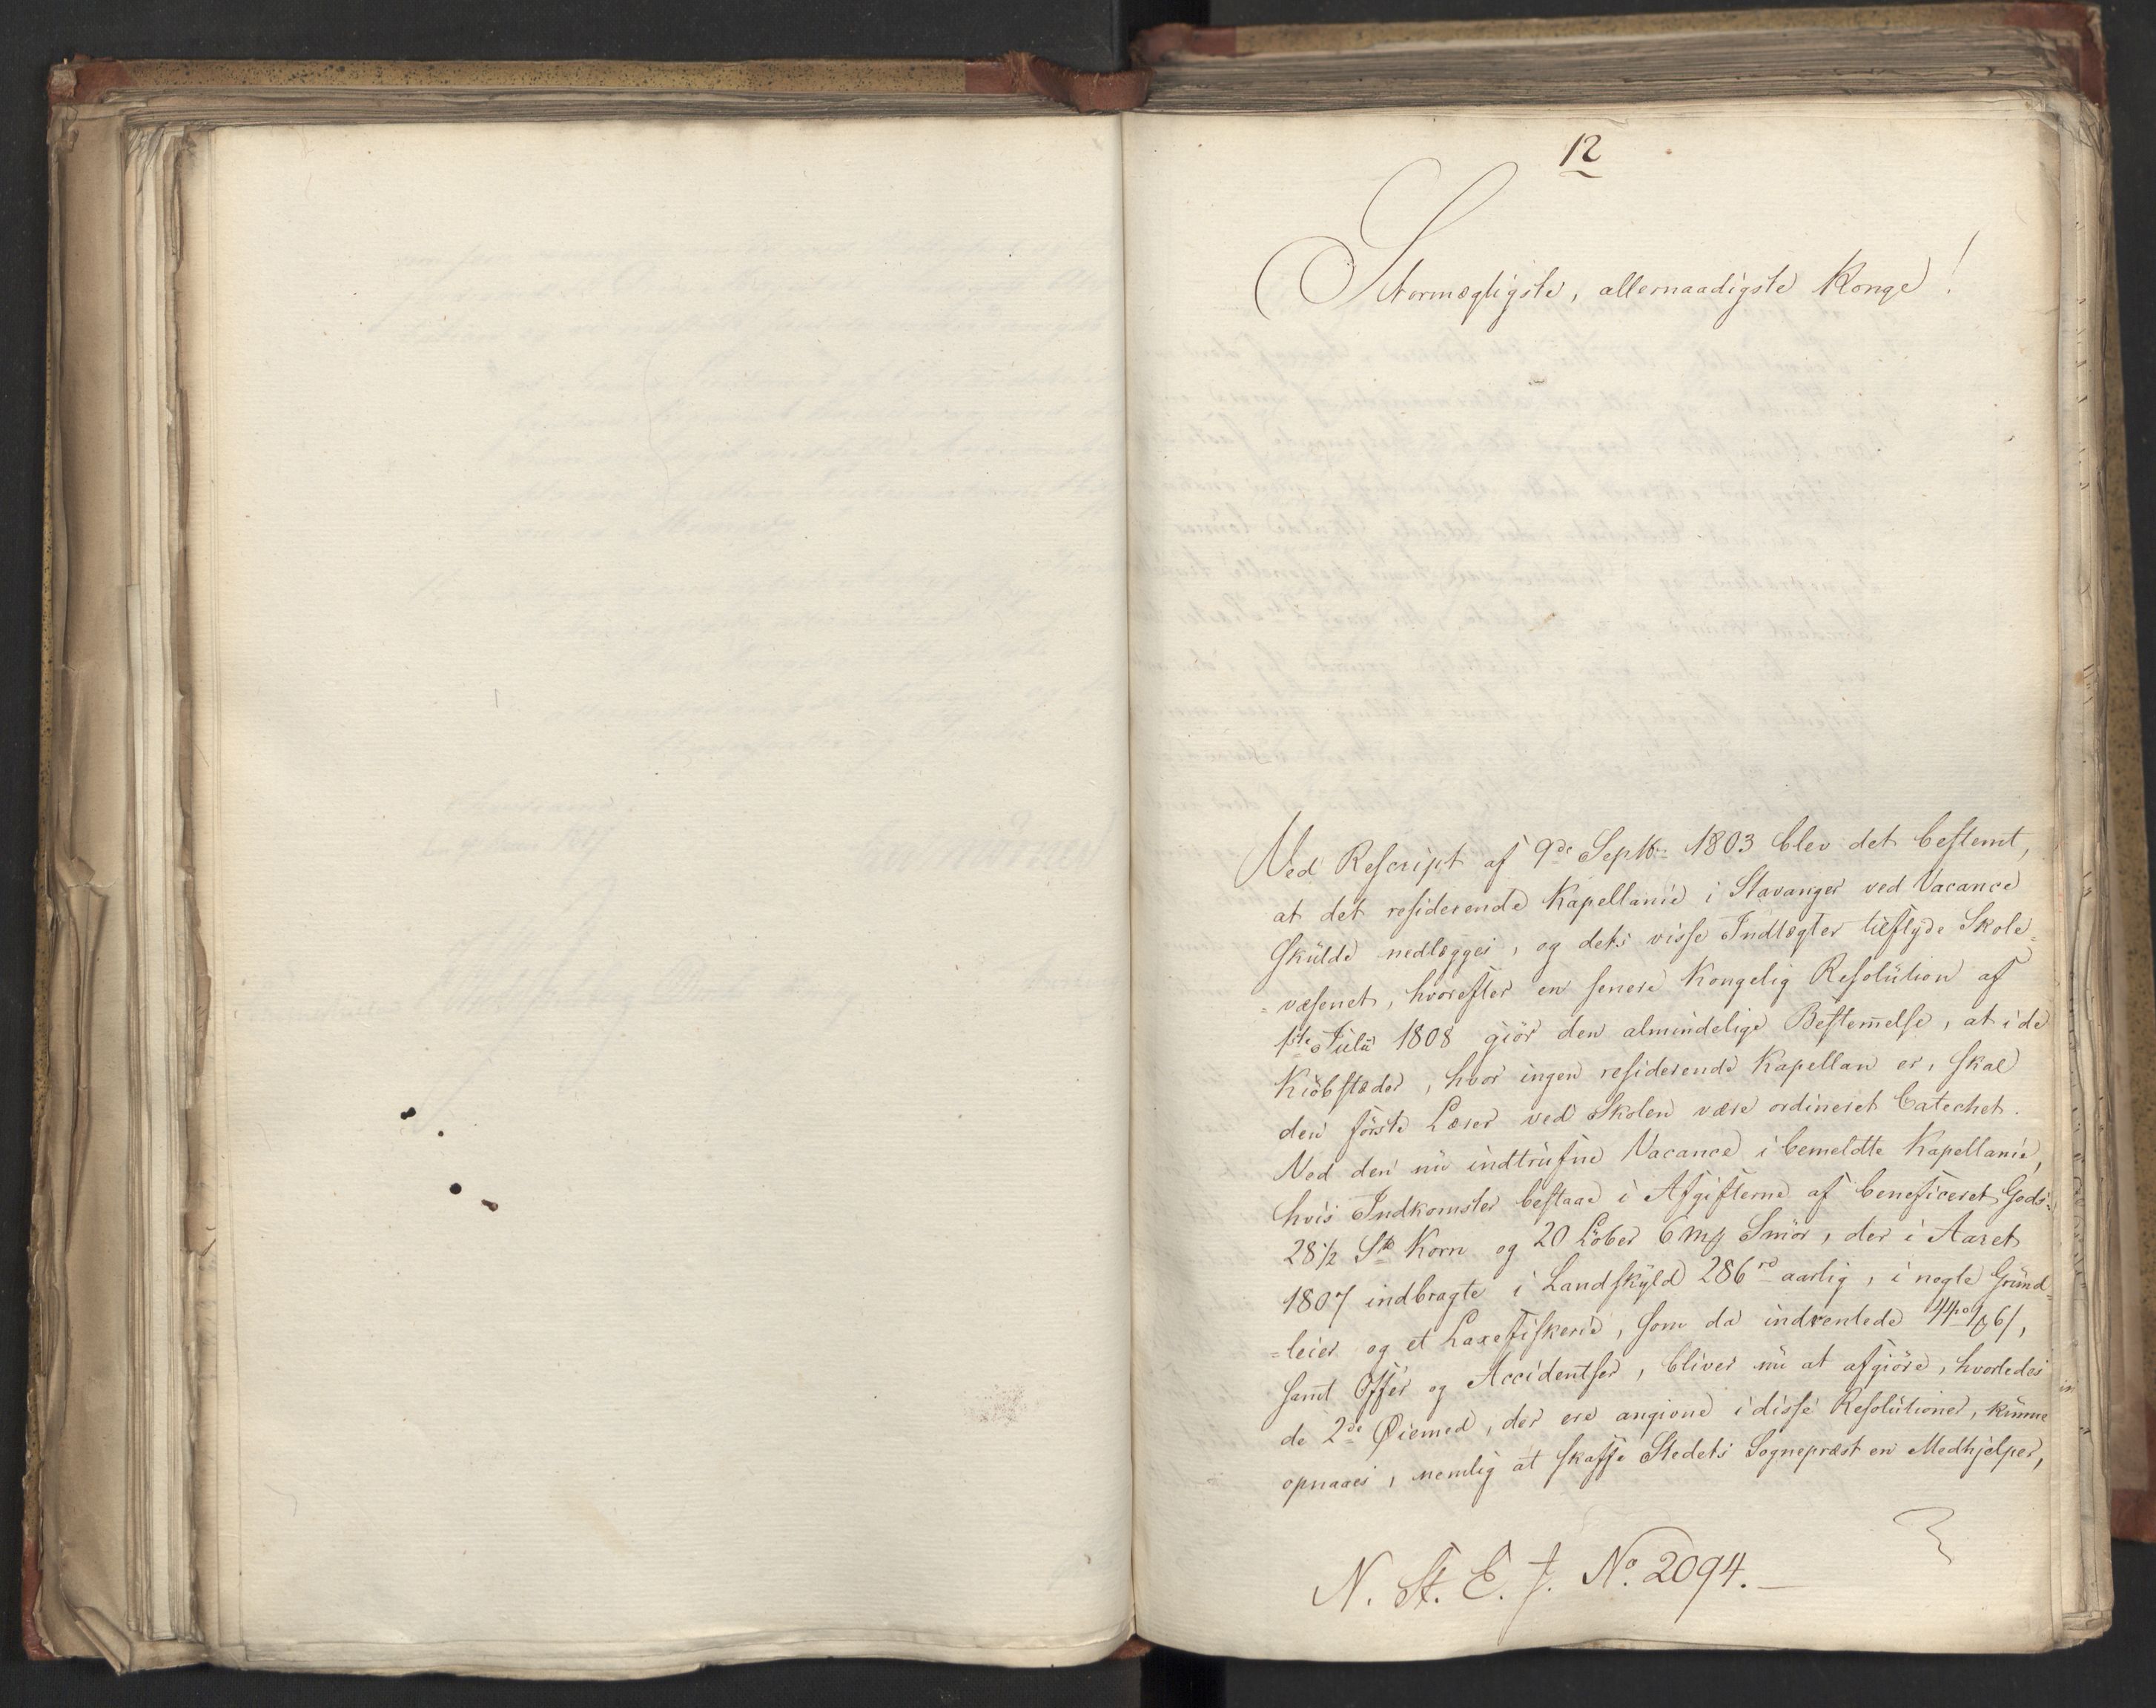 12
Stormægtigste, allernaadigste Konge!
Ved Rescript af 9de Septbr 1803 blev det bestemt,
at det residerende Kapellanie i Stavanger ved Vacance
skulde nedlægges, og dets visse Indtægter tilflyde Skole-
-væsenet, hvorefter en senere Kongelig Resolution af
1ste Julii 1808 giör den almindelige Bestemelse, at i de
Kiöbstæder, hvor ingen residerende Kapellan er, skal
den förste Lærer ved Skolen være ordineret Catechet.
Ved den nu indtrufne Vacance i bemeldte Kapellanie,
hvis Indkomster bestaae i Afgifterne af beneficeret Gods:
28 1/2 Korn og 20 Löber 6 Smör, der i Aaret
1807 indbragte i Landskyld 286 rd aarlig, i nogle Grund-
-leier og et Laxefiskerie, som da indrentede
samt Offer og Accidentser, bliver nu at afgiöre, hvorledes
de 2de Øiemed, der ere angivne i disse Resolutioner, kunne
opnaaes, nemlig at skaffe Stedets Sognepræst en Medhjelper,
N. St. E. J. No. 2094.